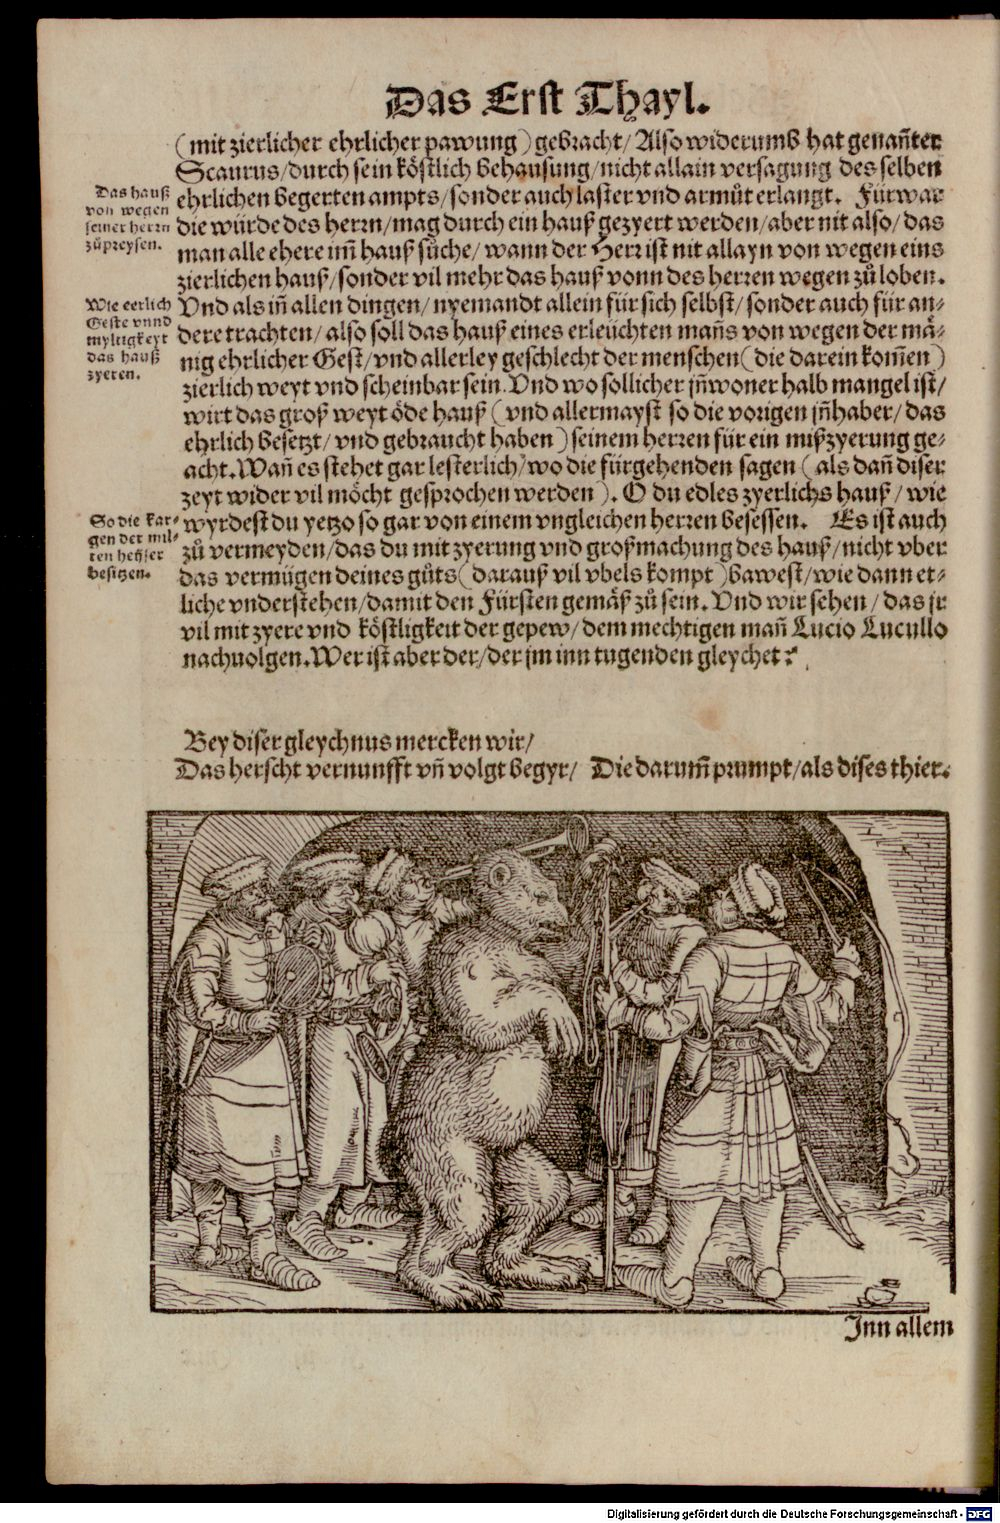 Das Erst Thayl.
(mit zierlicher ehrlicher pawung) gebracht/ Also widerumb hat genañter
Scaurus/durch sein köstlich behausung/nicht allain versagung des selben
ehrlichen begerten ampts/sonder auch laster vnd armůt erlangt. Fürwar
die würde des herrn/mag durch ein hauß gezyert werden/aber nit also/das
man alle ehere im̃ hauß sůche/ wann der Herr ist nit allayn von wegen eins
zierlichen hauß/sonder vil mehr das hauß vonn des herren wegen zů loben.
Das hauß
von wegen
seiner herrn
zůpreysen.
Vnd als iñ allen dingen/ nyemandt allein für sich selbst/ sonder auch für an-
dere trachten/ also soll das hauß eines erleüchten mañs von wegen der mä-
nig ehrlicher Gest/ vnd allerley geschlecht der menschen (die darein kom̃en)
zierlich weyt vnd scheinbar sein. Vnd wo sollicher jñwoner halb mangel ist/
wirt das groß weyt öde hauß (vnd allermayst so die vorigen jñhaber/ das
ehrlich besetzt/ vnd gebraucht haben) seinem herren für ein mißzyerung ge-
acht. Wañ es stehet gar lesterlich/ wo die fürgehenden sagen (als dañ diser
zeyt wider vil möcht gesprochen werden). O du edles zyerlichs hauß/ wie
Wie eerlich
Geste vnnd
myltigkeyt
das hauß
zyeren.
wyrdest du yetzo so gar von einem vngleichen herren besessen. Es ist auch
zů vermeyden/das du mit zyerung vnd großmachung des hauß/nicht vber
das vermügen deines gůts (darauß vil vbels kompt) bawest/wie dann et-
liche vnderstehen/damit den Fürsten gemäß zů sein. Vnd wir sehen/ das jr
vil mit zyere vnd köstligkeit der gepew/ dem mechtigen mañ Lucio Lucullo
nachuolgen. Wer ist aber der/der jm inn tugenden gleychet?
So die kar-
gen der mil-
ten heüser
besitzen.
Bey diser gleychnus mercken wir/
Das herscht vernunfft vñ volgt begyr/ Die darum̃ prumpt/als dises thier.
Inn allem
Digitalisierung gefördert durch die Deutsche Forschungsgemeinschaft - DFG